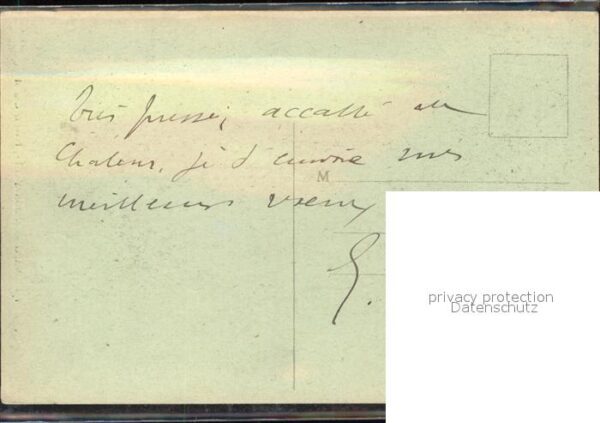 Très pressé, accablé de
chaleur, je t'envoie mes
M
meilleurs vœux
E.
privacy protection
Datenschutz